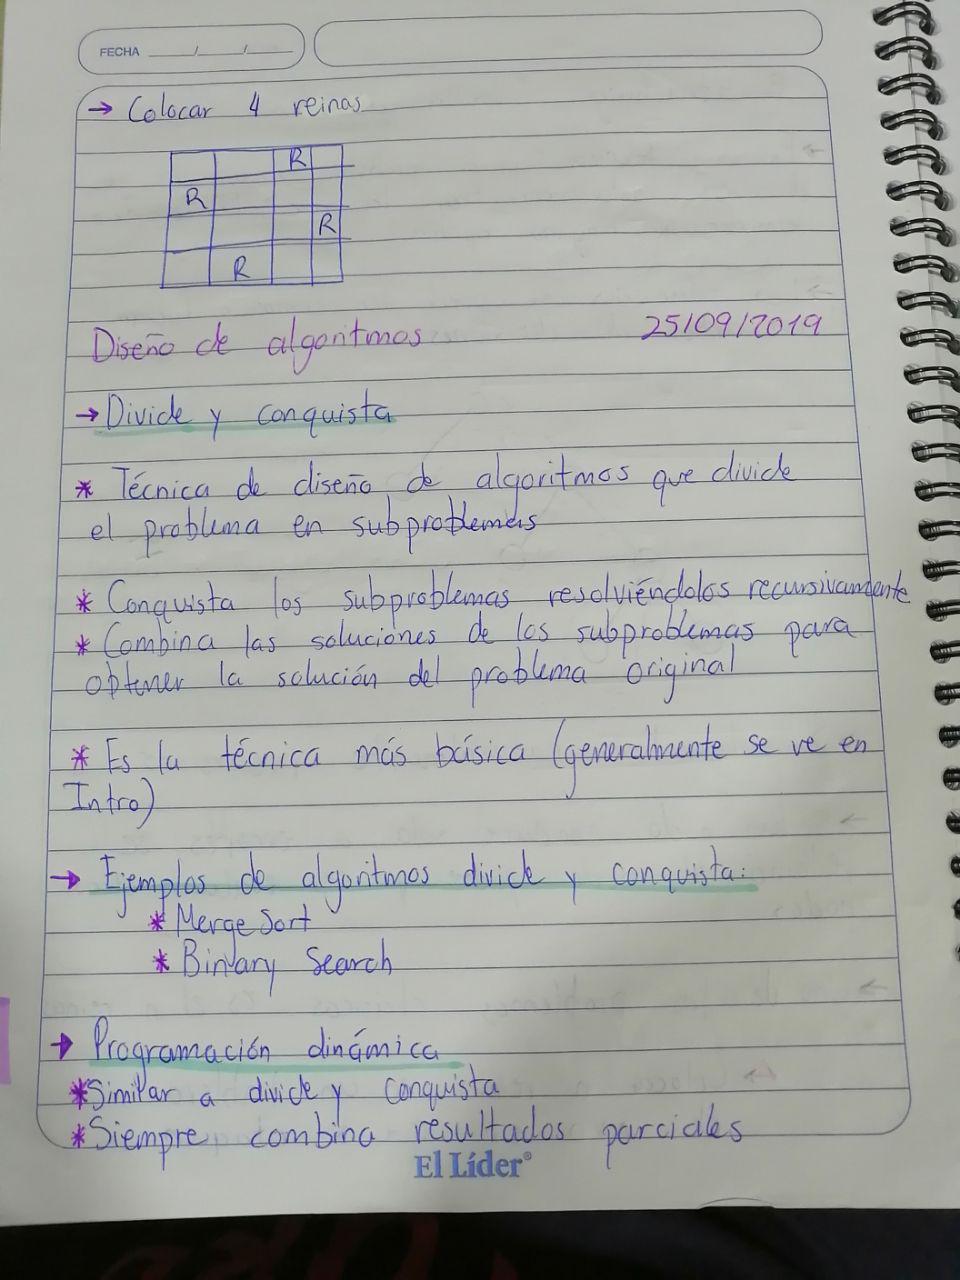 FECHA ___/___/___
→ Colocar 4 reinas
R
R
R
R
Diseño de algoritmos 25/09/2019
→ Divide y conquista
* Técnica de diseño de algoritmos que divide
el problema en subproblemas
* Conquista los subproblemas resolviéndolos recursivamente
* Combina las soluciones de los subproblemas para
obtener la solución del problema original
* Es la técnica más básica (generalmente se ve en
Intro)
→ Ejemplos de algoritmos divide y conquista:
* Merge Sort
* Binary Search
→ Programación dinámica
* Similar a divide y conquista
* Siempre combina resultados parciales
El Líder®